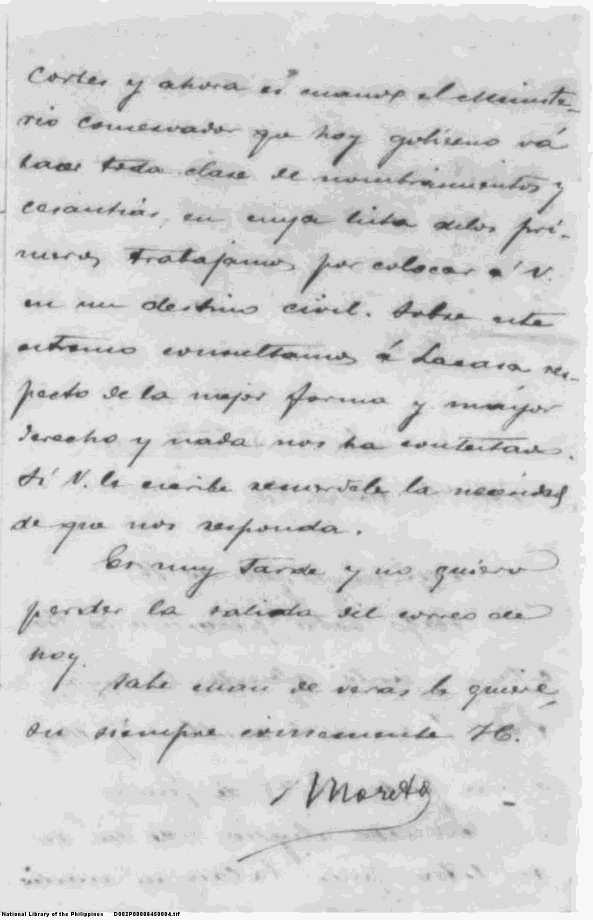 Cortes y ahora es cuando el Ministe-
rio conservador que hoy gobierna vá
hacer toda clase de nombramientos y
cesantias, en cuya lista delos pri-
meros trabajamos por colocar á V.
en un destino civil. Sobre este
estremo consultamos á Lacasa res-
pecto de la mejor forma y mayor
derecho y nada nos ha contestado.
Si V. le escribe recuerdele la necesidad
de que nos responda.
Es muy tarde y no quiero
perder la salida del correo de
hoy.
Sabe cuan de veras le quiere
su siempre
Moreta
National Library of the Philippines D002P00006450004.tif